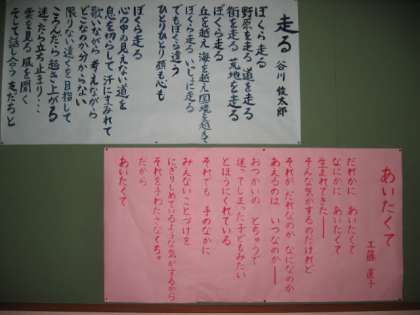 走る
谷川 俊太郎
ぼくら 走る
野原を走る 道を走る
街を走る 荒地を走る
ぼくら走る
丘を越え 国境を越えて
ぼくら走る いっしょに走る
でもぼくら違う
ひとりひとり 顔も心も
ぼくら走る
心の中の見えない道を
息を切らして 汗にまみれて
歌いながら 考えながら
どこなのか分からない
限りない遠くを目指して
ころんだら 起き上がる
迷ったら 立ち止まり…
雲を見る 風を聞く
そして話し合う 友だちと
あいたくて
工藤 直子
だれかに あいたくて
なにかに あいたくて
生まれてきた――
そんな気がするのだけれど
それが だれなのか なになのか
あえるのは いつなのか――
おつかいの とちゅうで
迷ってしまった子どもみたい
とほうに くれている
それでも 手のなかに
みえないことづけを
にぎりしめているような気がするから
それを手わたさなくちゃ
だから
あいたくて